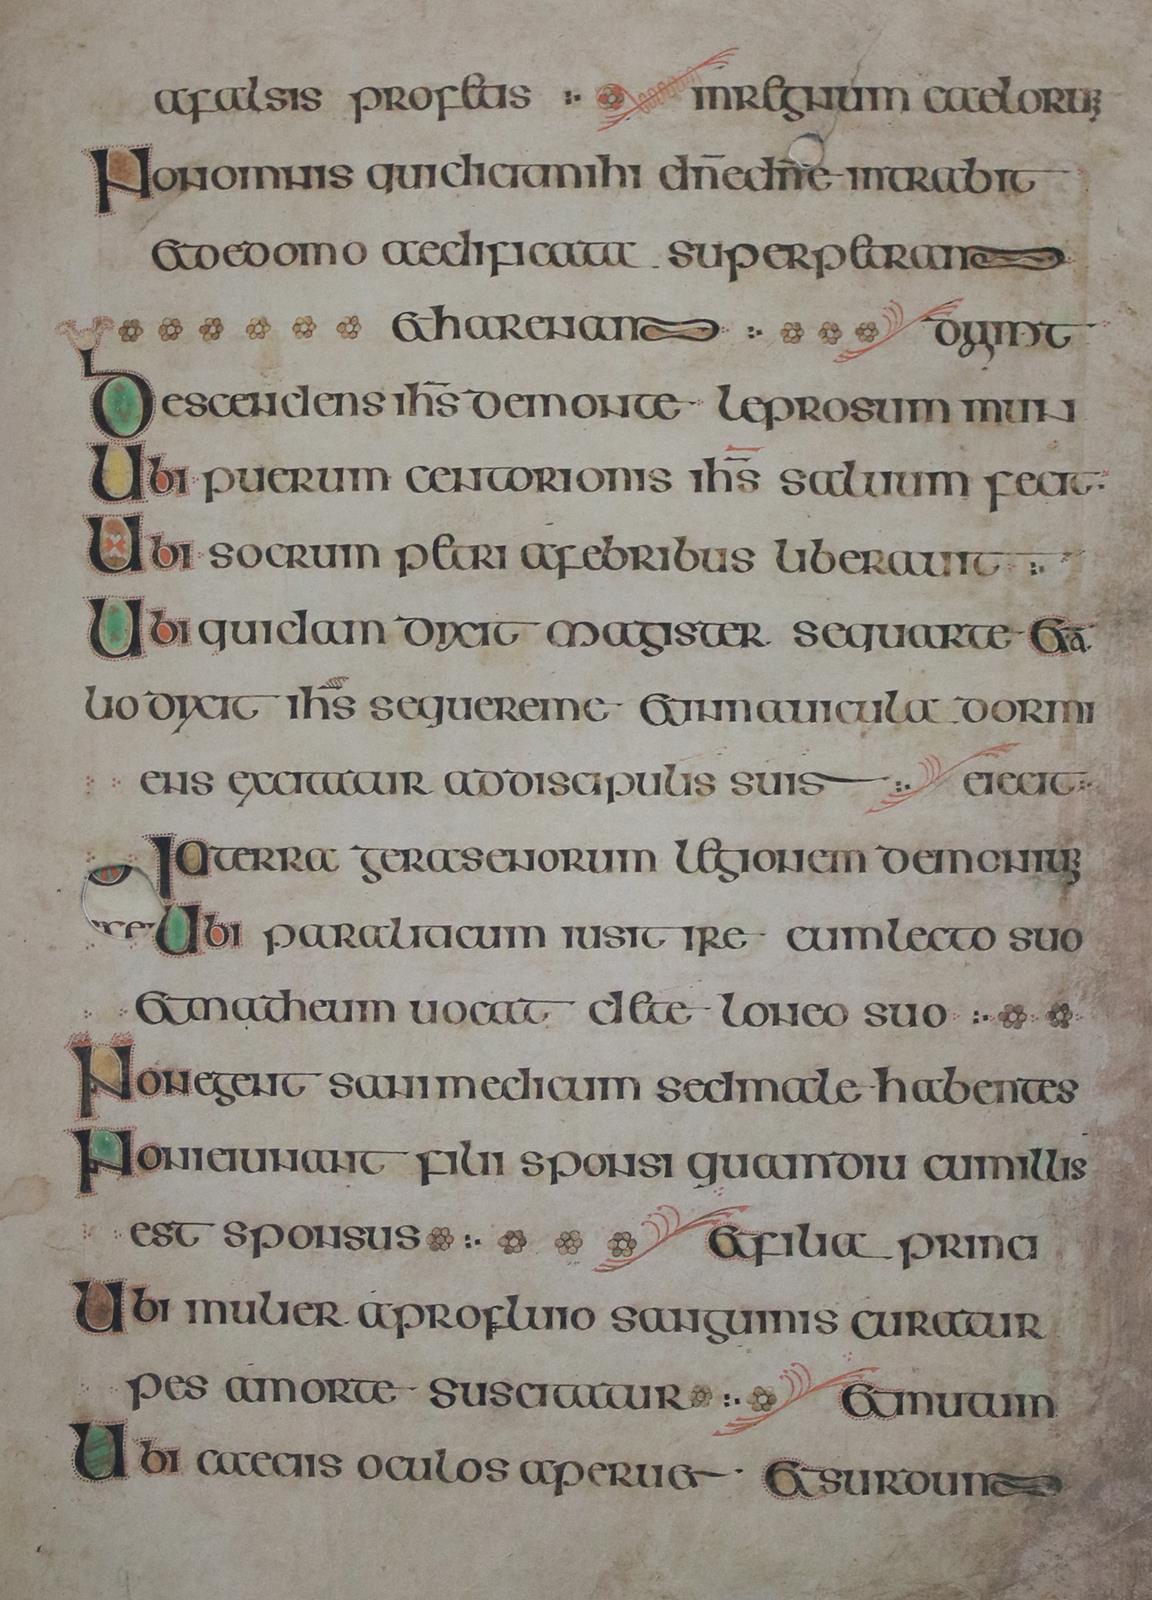 afalsis profetis inregnum caeloru;
Nonomnis quidicitmihi dn̄edn̄e intrabit
etdedomo aedificata superpetram
etharenam dixit
Descendens ihs̄demonte leprosum mun
Ubi puerum centorionis ihs̄ saluum fecit
Ubi socrum petri afebribus liberauit
Ubi quidam dixit magister sequarte eta
lio dixit ihs̄ sequereme etinnauicula dormi
ens excitatur addiscipulis suis eiecit
terra gerasenorum legionem demoniu;
Ubi paraliticum iusit ire cumlecto suo
etmatheum uocat de teloneo suo
Nonegent sanimedicum sedmale habentes
Nonieiunant filii sponsi quamdiu cumillis
est sponsus etfilia princi
Ubi mulier aprofluio sanguinis curatur
pes amorte suscitatur etmutum
Ubi caecis oculos aperuet etsurdum